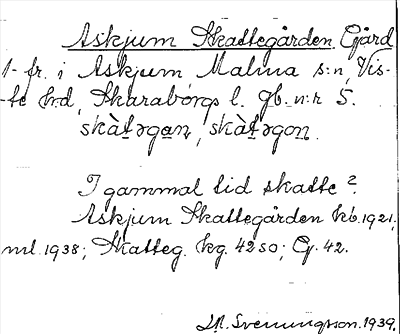 Askjum Skattegården Gård
1. fr. i Askjum Malma s:n, Vis-
-te h:d, Skaraborgs l. Gb. n:r 5.
skàt̠əgan̠, skàt̠əgon̠.
I gammal tid skatte?
Askjum Skattegården kb. 1921;
ml. 1938; Skatteg. kg. 42 so; Gg. 42.
Svenungsson. 1939.